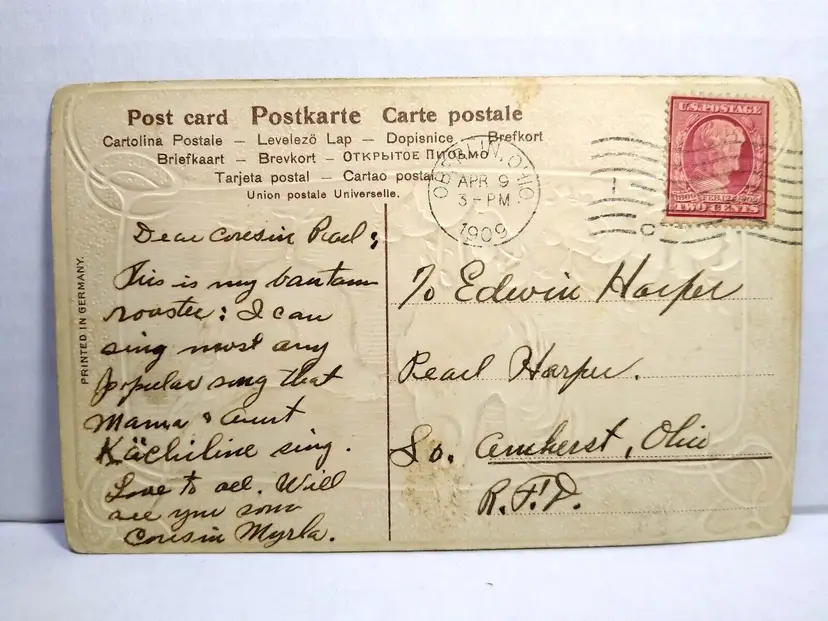 Post card Postkarte Carte postale
Cartolina Postale – Levelezö Lap – Dopisnice – Brefkort
Briefkaart – Brevkort – ОТКРЫТОЕ ПИСЬМО
Tarjeta postal – Cartao postal
Union postale Universelle.
PRINTED IN GERMANY.
OBERLIN, OHIO
APR 9
3-PM
1909
U.S. POSTAGE
TWO CENTS
Dear Cousin Pearl;
This is my bantam
rooster: I can
sing most any
popular song that
Mama & Aunt
sing.
Love to all. Will
see you soon
Cousin Myrla.
To Edwin Harper
Pearl Harper.
So. Amherst, Ohio
R.F.D.